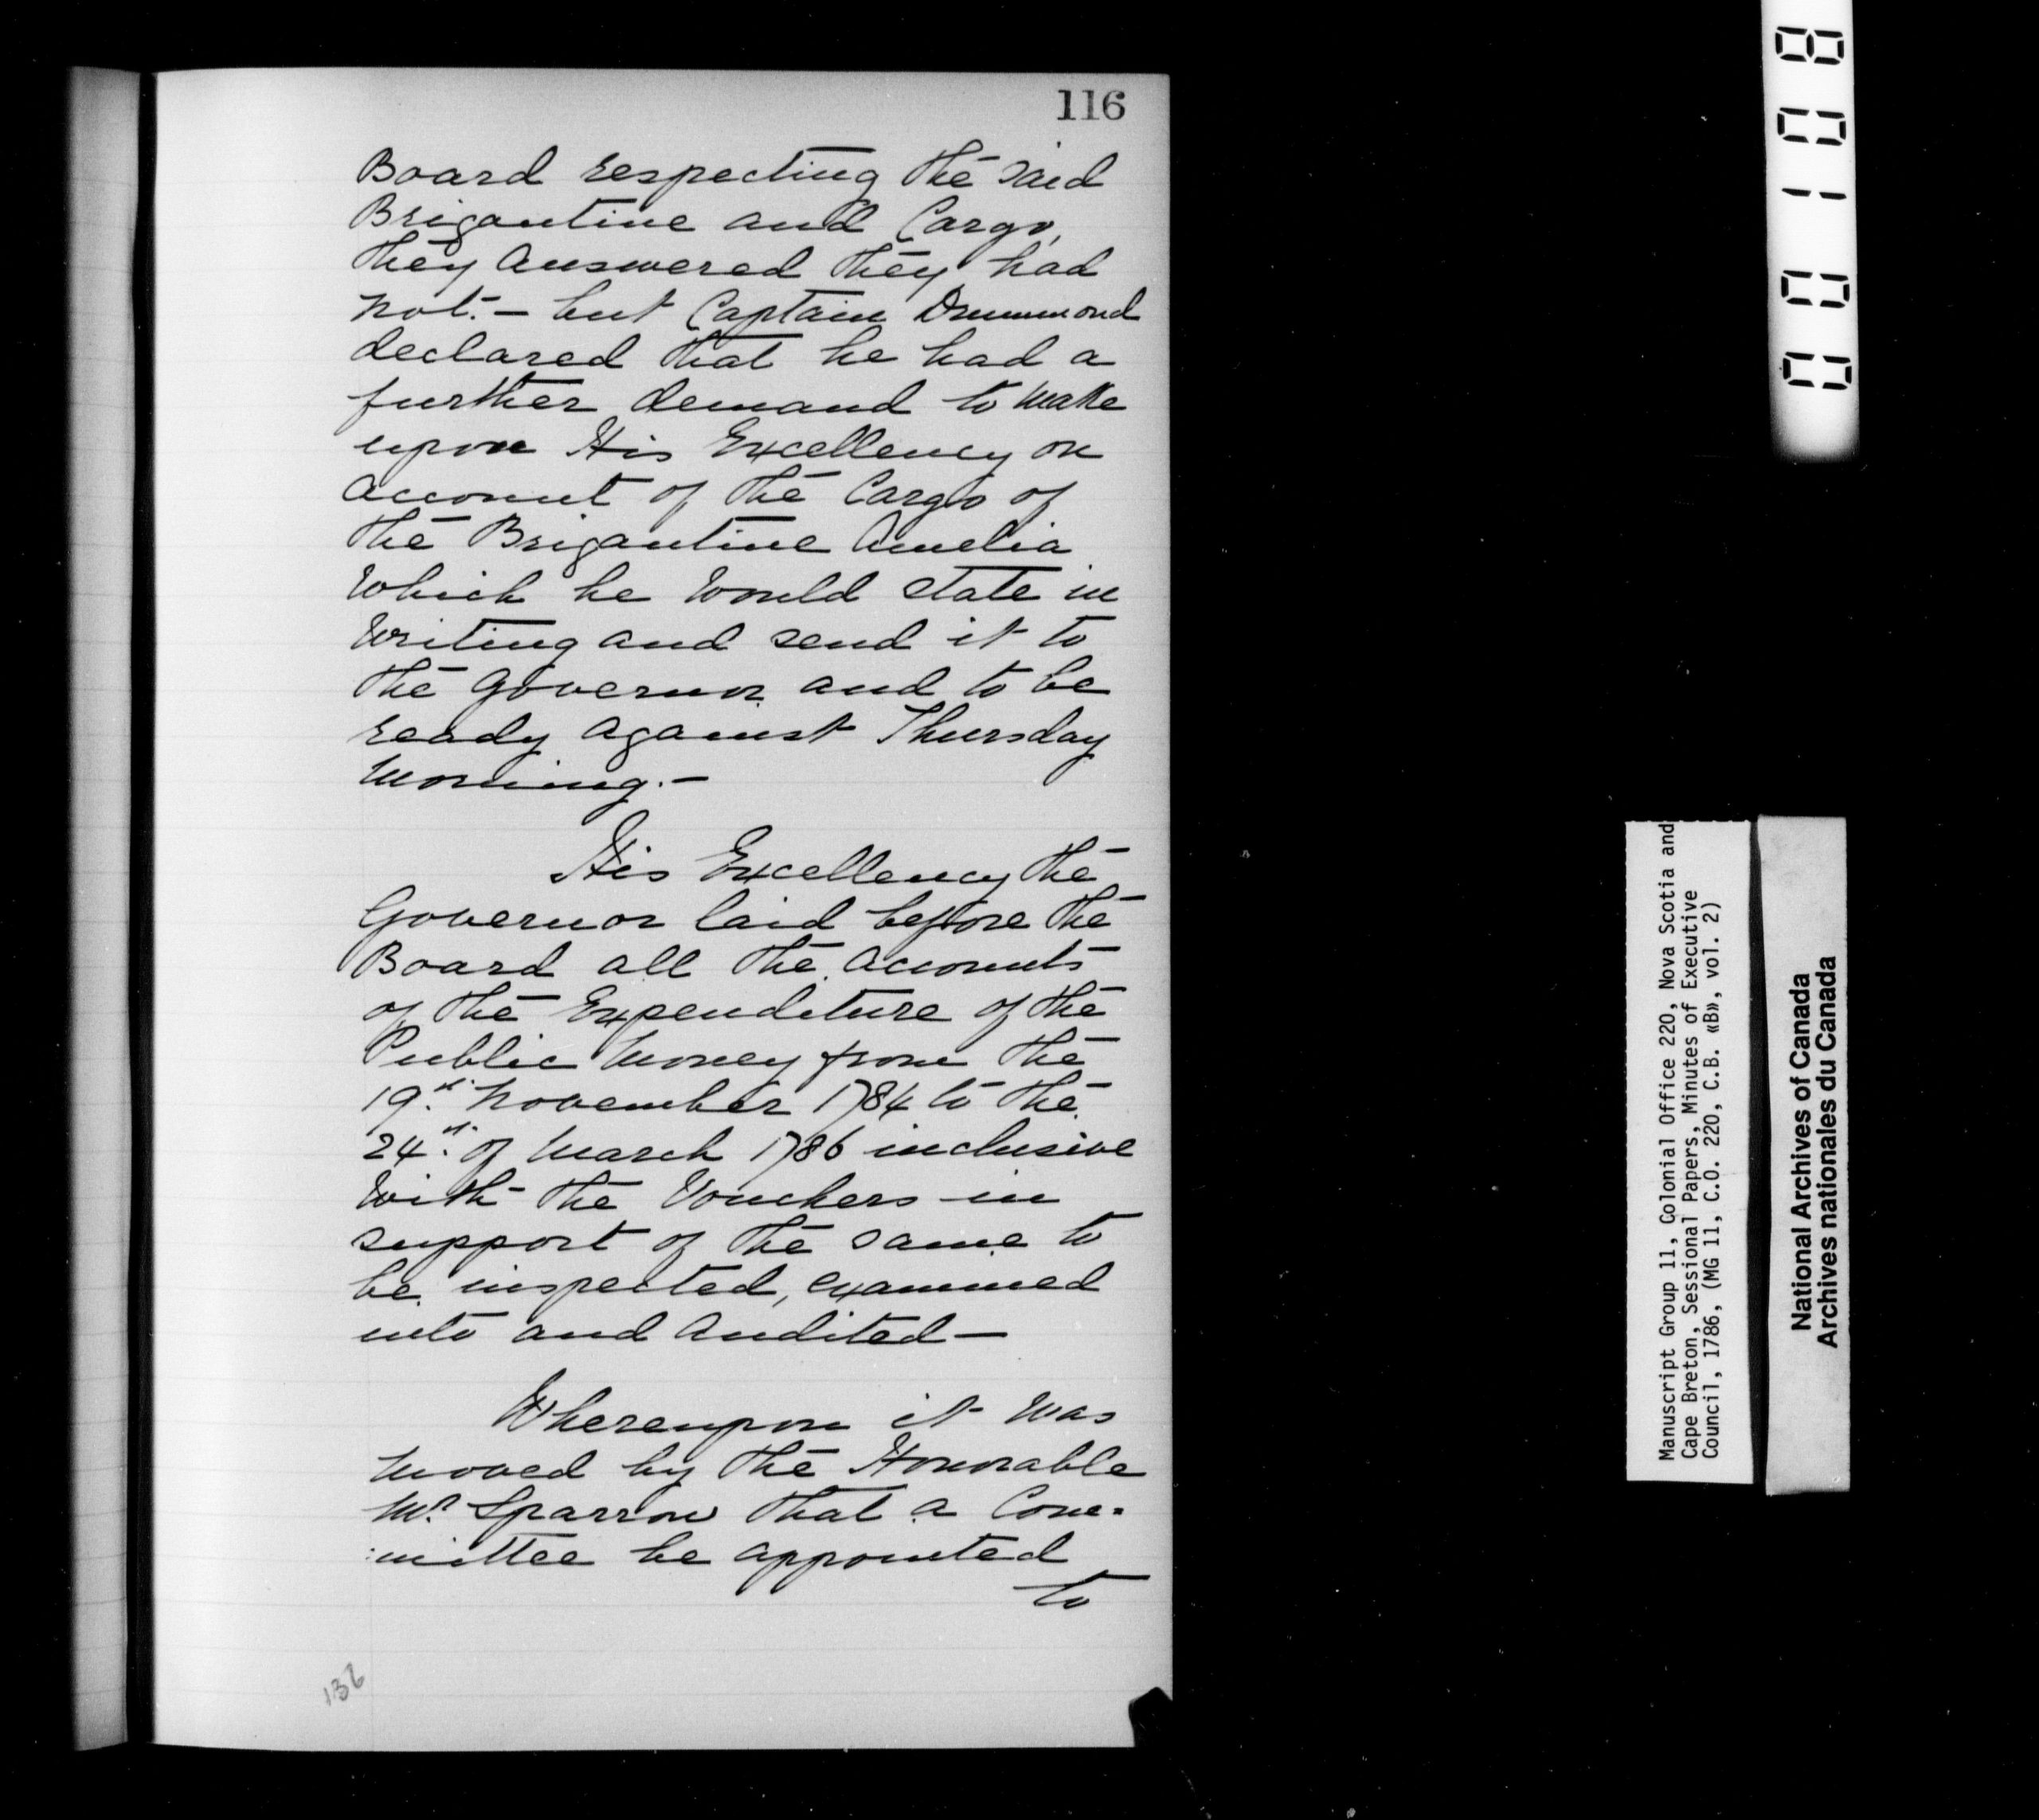 116
Board respecting the said
Brigantine and Cargo,
they answered they had
not. – but Captain Drummond
declared that he had a
further demand to make
upon His Excellency on
account of the Cargo of
the Brigantine Amelia
which he would state in
writing and send it to
the Governor and to be
ready against Thursday
morning. –
His Excellency the
Governor laid before the
Board all the accounts
of the Expenditure of the
Public Money from the
19th November 1784 to the
24th of March 1786 inclusive
with the Vouchers in
support of the same to
be inspected, examined
into and audited –
Whereupon it was
moved by the Honorable
Mr. Sparrow that a Com=
:mittee be appointed
to
136
001108
Manuscript Group 11, Colonial Office 220, Nova Scotia and
Cape Breton, Sessional Papers, Minutes of Executive
Council, 1786, (MG 11, C.O. 220, C.B. «B», vol. 2)
National Archives of Canada
Archives nationales du Canada